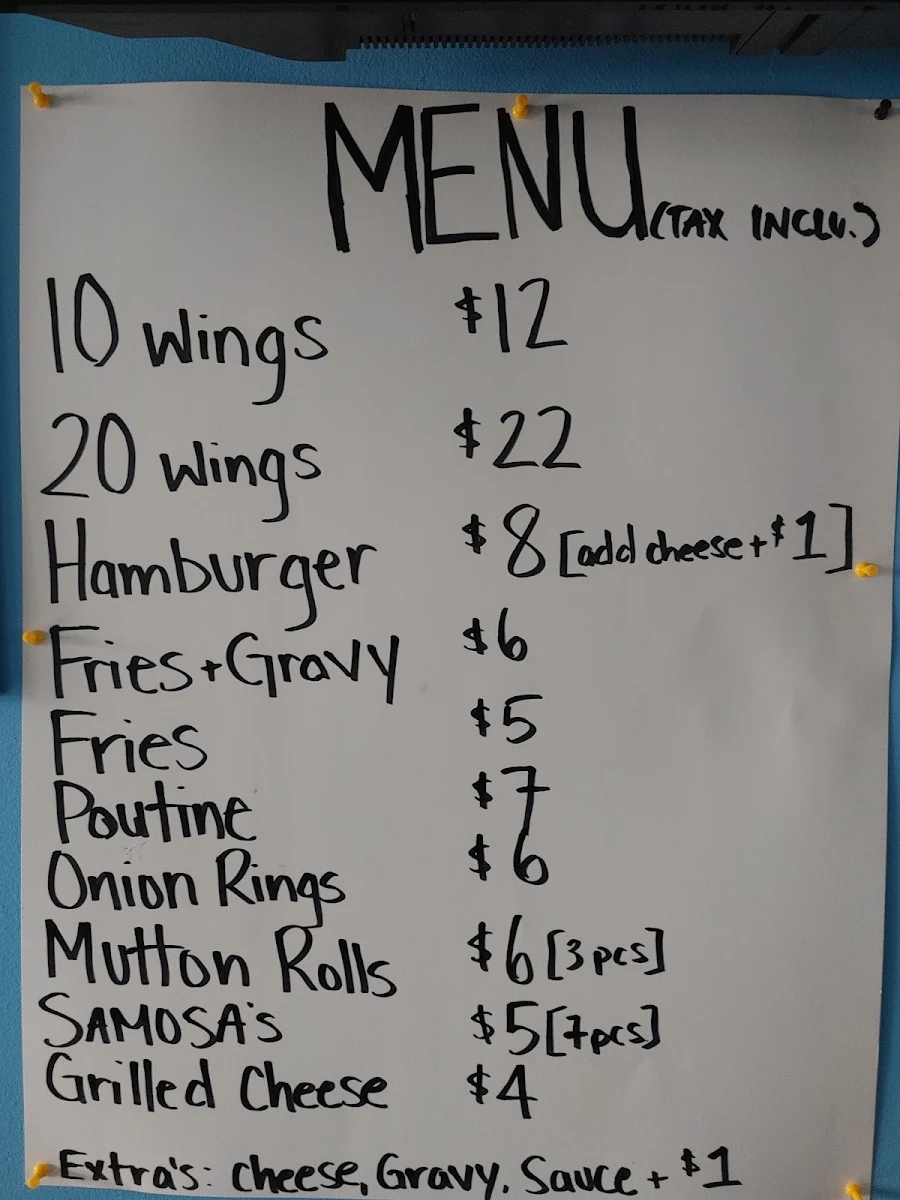 MENU (TAX INCLU.)
10 wings $12
20 wings $22
Hamburger $8 [add cheese + $1]
Fries + Gravy $6
Fries $5
Poutine $7
Onion Rings $6
Mutton Rolls $6 [3 pcs]
SAMOSA's $5 [7 pcs]
Grilled Cheese $4
Extra's: cheese, Gravy. Sauce + $1